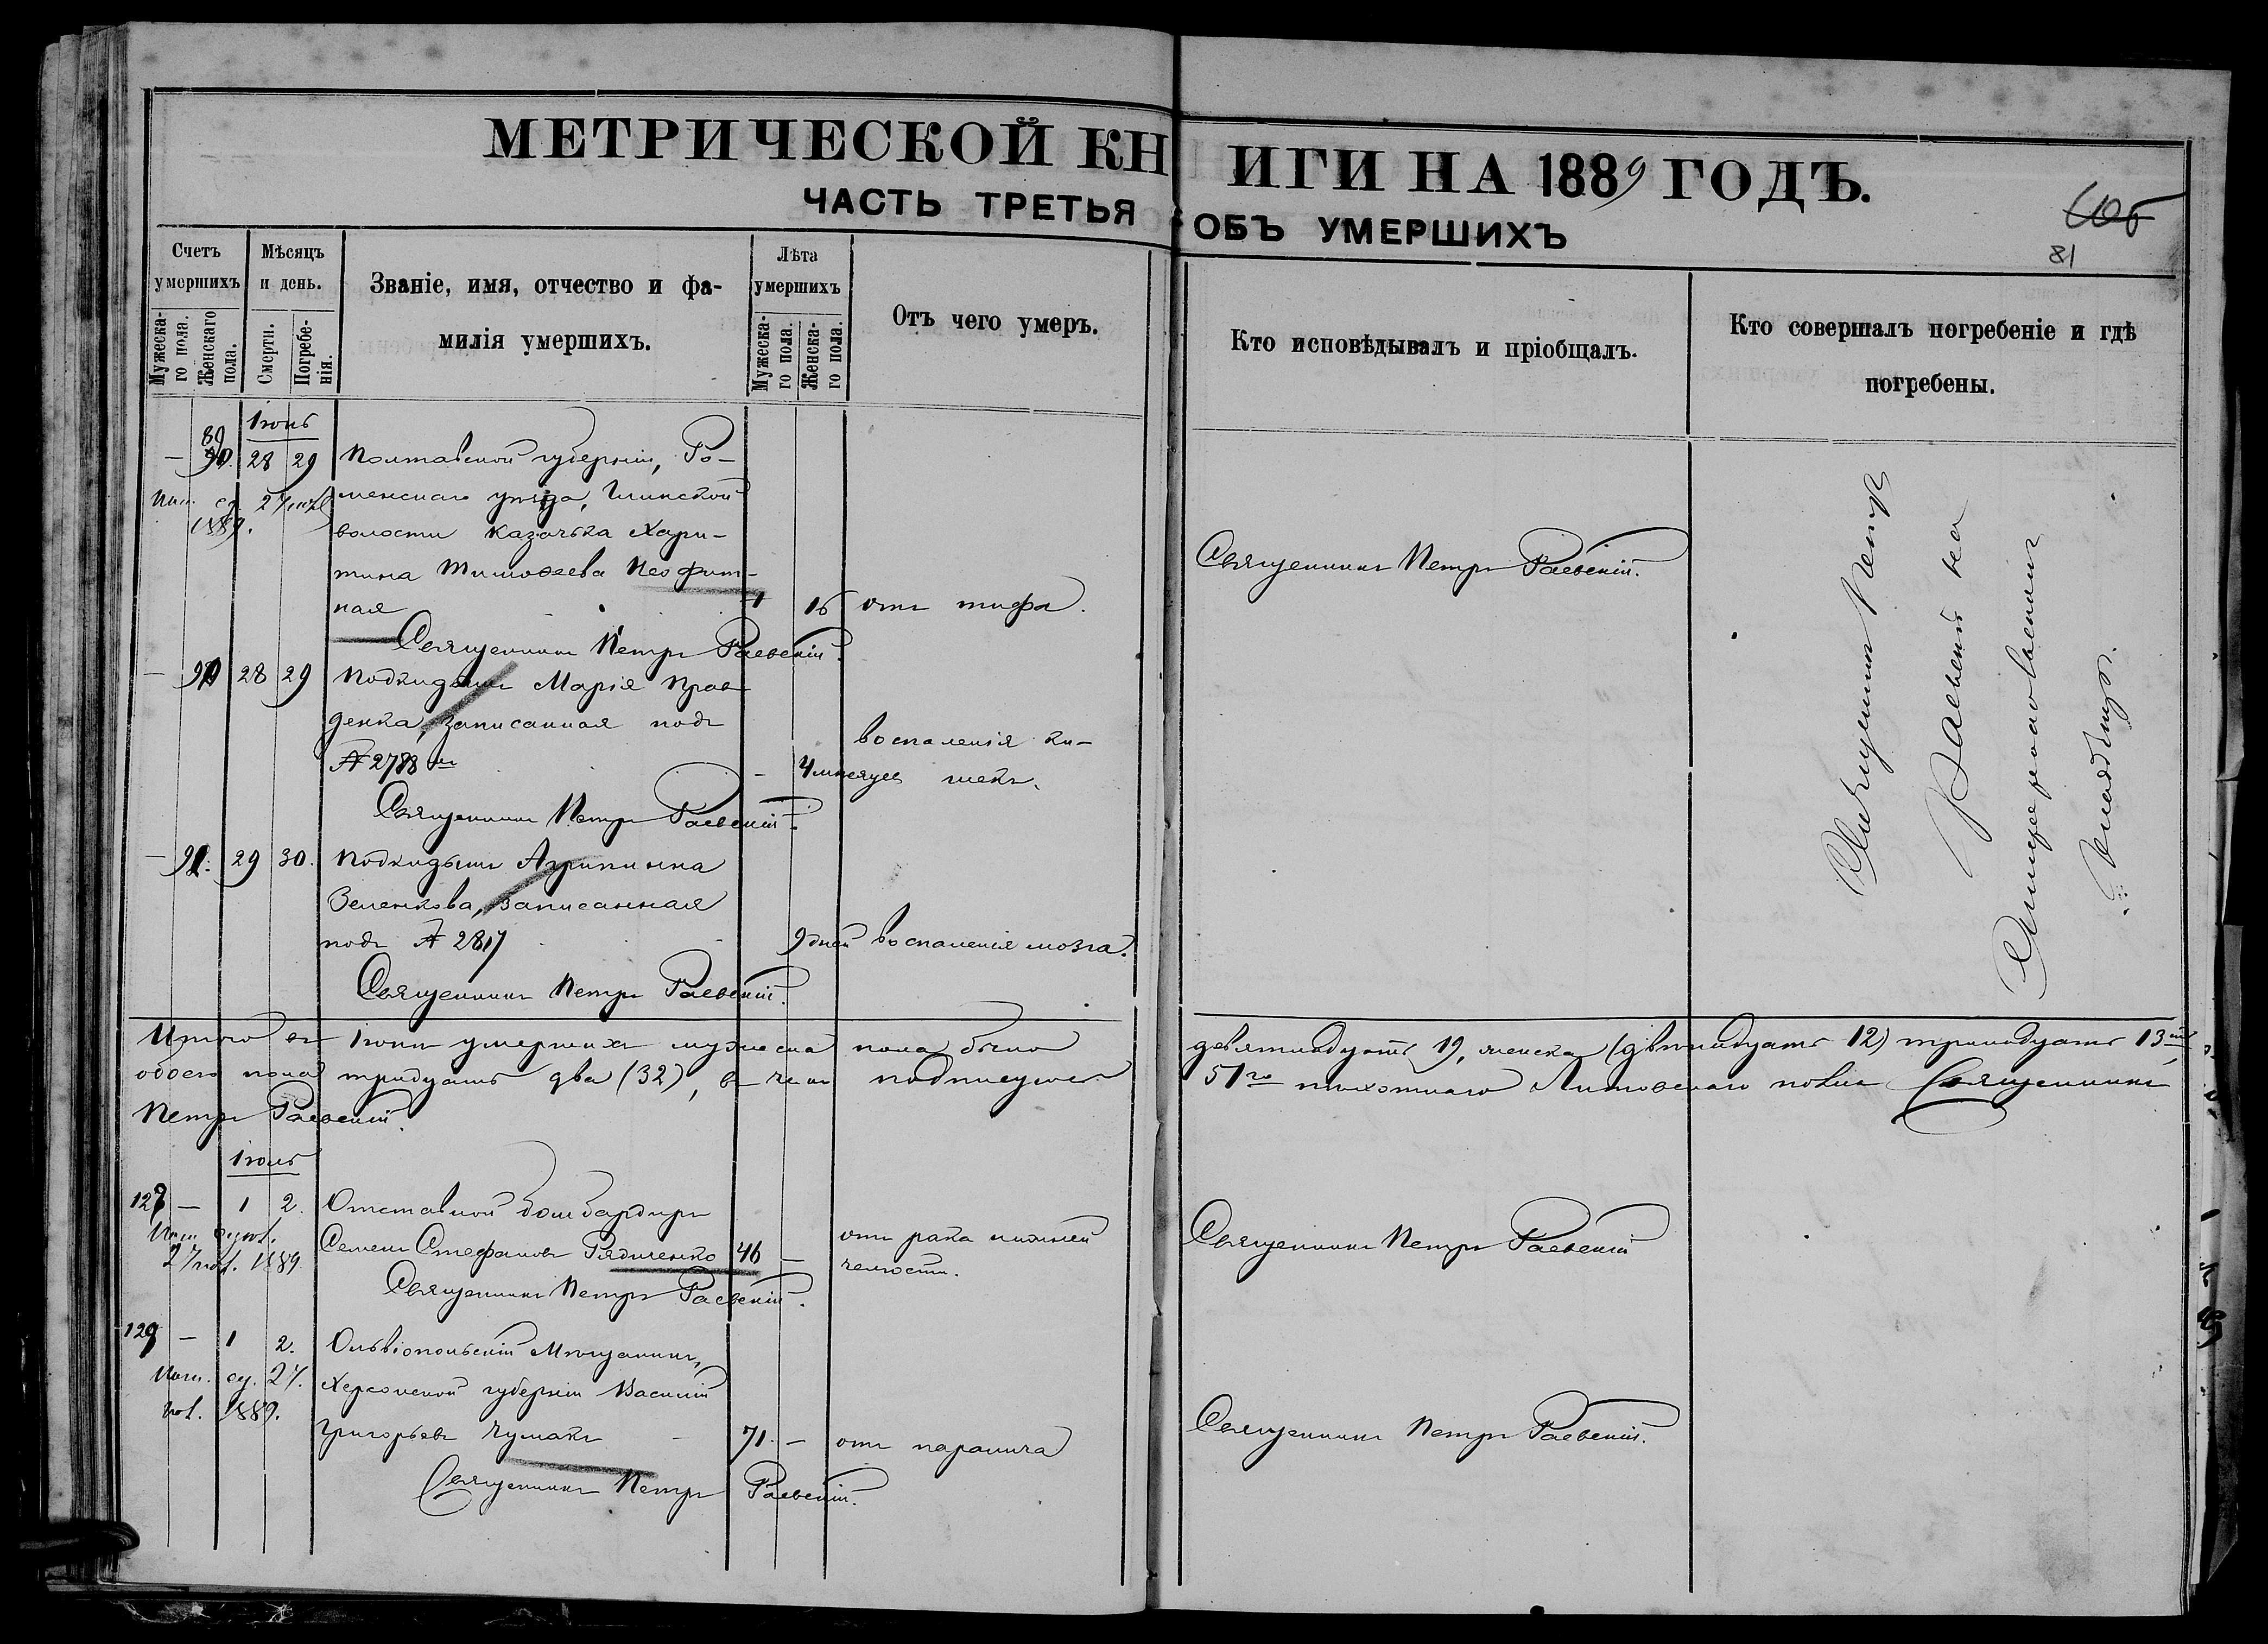 МЕТРИЧЕСКОЙ КНИГИ НА 1889 ГОДЪ.
ЧАСТЬ ТРЕТЬЯ ОБЪ УМЕРШИХЪ
81
Счетъ умершихъ
Мужескаго пола.
Женскаго пола.
Мѣсяцъ и день.
Смерти.
Погребенія.
Званіе, имя, отчество и фамилія умершихъ.
Лѣта умершихъ
Мужескаго пола.
Женскаго пола.
Отъ чего умеръ.
Кто исповѣдывалъ и пріобщалъ.
Кто совершалъ погребеніе и гдѣ погребены.
Іюнь
— 89 28 29 Полтавской губерніи, Ро-
менскаго уѣзда, Глинской
волости казачка Хари-
тина Тимофеева Неофит-
ная 16 отъ тифа.
1889.
Священникъ Петръ Раевскій.
Священникъ Петръ Раевскій.
— 90 28 29 Подкидышъ Марія Прав-
денка, записанная подъ
№ 2788 — 4 мѣсяцев воспаленія ки-
шекъ.
Священникъ Петръ Раевскій.
— 91. 29 30. Подкидышъ Агрипинна
Зеленкова, записанная
подъ № 2817 9 дней воспаленія мозга.
Священникъ Петръ Раевскій.
Священникъ Петръ
Раевскій на
кладбищѣ.
Итого въ Іюнѣ умершихъ мужеска пола было девятнадцать 19, женска (двѣнадцать 12) тринадцать 13
обоего пола тридцать два (32), въ чемъ подписуюсь 51го пѣхотнаго Литовскаго полка Священникъ
Петръ Раевскій.
Іюль
128 — 1 2. Отставной бомбардиръ
Семенъ Стефановъ Рядиченко 46 — отъ рака нижней
челюсти.
1889.
Священникъ Петръ Раевскій
Священникъ Петръ Раевскій.
129 — 1 2. Ольвіопольскій Мѣщанинъ,
Херсонской губерніи Василій
Григорьевъ Чумакъ 71. — отъ паралича
1889.
Священникъ Петръ Раевскій.
Священникъ Петръ Раевскій.